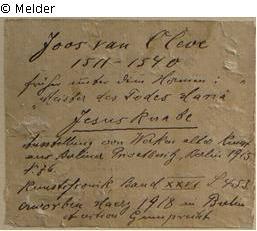 © Melder
Joos van Cleve
1511-1540
früher unter dem Namen:
"Meister des Todes Mariä"
Jesusknabe
Ausstellung von Werken alter Kunst
aus Berliner Privatbesitz, Berlin 1915
Kunstchronik Band XXIX S 453
erworben März 1918 in Berlin
Auction